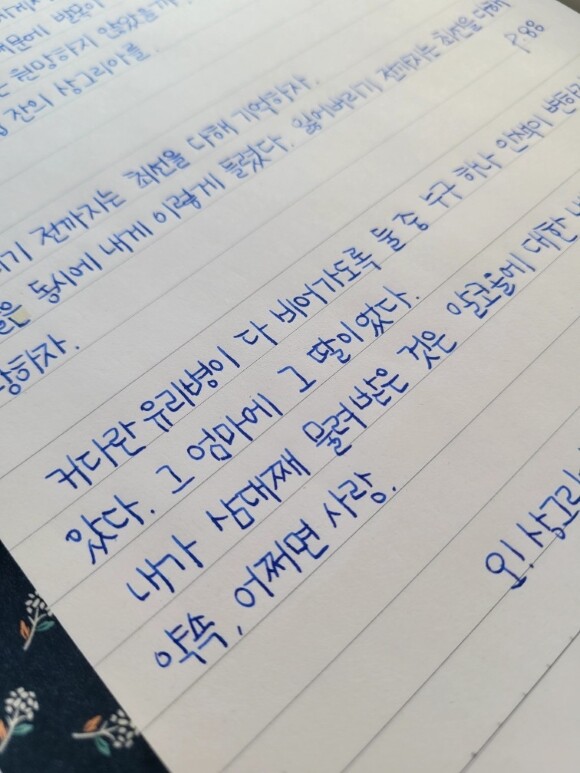 때문에
원망하지 않았을
잔의 상그리아를.
전까지는 최선을 다해 기억하자.
동시에 내게 이렇게 들렸다. 잃어버리기 전까지는 최선을 다해
하자.
p.88
커다란 유리병이 다 비어가도록 둘 중 누구 하나 안색이 변하
았다. 그 엄마에 그 딸이었다.
내가 삼대째 물려받은 것은 알코올에 대한
약속, 어쩌면 사랑.
오! 상그리